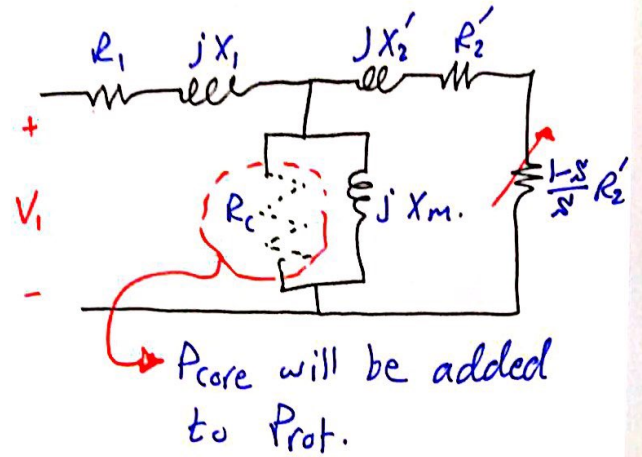 R₁ jX₁ jX₂' R₂'
+
V₁ Rc jXm. 1-s/s R₂'
-
Pcore will be added
to Prot.